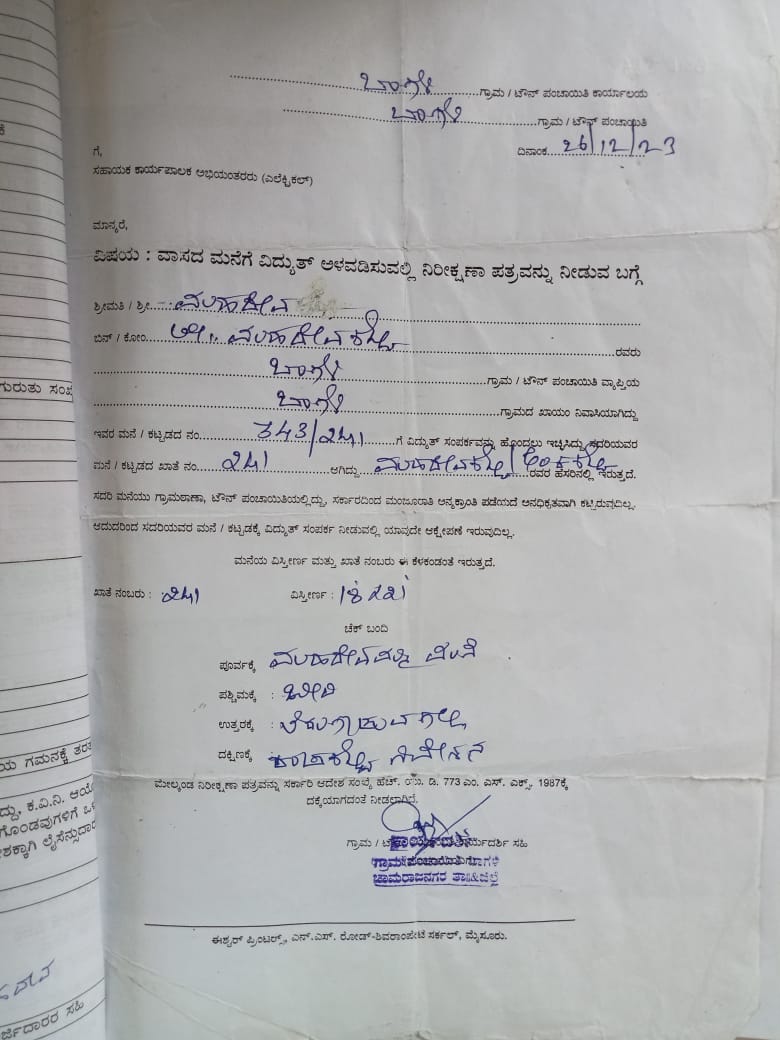 ಬಾಗಳಿ ಗ್ರಾಮ / ಟೌನ್ ಪಂಚಾಯಿತಿ ಕಾರ್ಯಾಲಯ
ಬಾಗಳಿ ಗ್ರಾಮ / ಟೌನ್ ಪಂಚಾಯಿತಿ
ದಿನಾಂಕ 26/12/23
ಗೆ,
ಸಹಾಯಕ ಕಾರ್ಯಪಾಲಕ ಅಭಿಯಂತರರು (ಎಲೆಕ್ಟ್ರಿಕಲ್)
ಮಾನ್ಯರೆ,
ವಿಷಯ : ವಾಸದ ಮನೆಗೆ ವಿದ್ಯುತ್ ಅಳವಡಿಸುವಲ್ಲಿ ನಿರೀಕ್ಷಣಾ ಪತ್ರವನ್ನು ನೀಡುವ ಬಗ್ಗೆ
ಶ್ರೀಮತಿ / ಶ್ರೀ. ಮಹದೇವ
ಬಿನ್ / ಕೋಂ. ಮಹದೇವಶೆಟ್ಟಿ ರವರು
ಬಾಗಳಿ ಗ್ರಾಮ / ಟೌನ್ ಪಂಚಾಯಿತಿ ವ್ಯಾಪ್ತಿಯ
ಬಾಗಳಿ ಗ್ರಾಮದ ಖಾಯಂ ನಿವಾಸಿಯಾಗಿದ್ದು
ಇವರ ಮನೆ / ಕಟ್ಟಡದ ನಂ. 343/241 ಗೆ ವಿದ್ಯುತ್ ಸಂಪರ್ಕವನ್ನು ಹೊಂದಲು ಇಚ್ಛಿಸಿದ್ದು ಸದರಿಯವರ
ಮನೆ / ಕಟ್ಟಡದ ಖಾತೆ ನಂ. 241 ಆಗಿದ್ದು ಮಹದೇವಶೆಟ್ಟಿ / ರವರ ಹೆಸರಿನಲ್ಲಿ ಇರುತ್ತದೆ.
ಸದರಿ ಮನೆಯು ಗ್ರಾಮಠಾಣಾ, ಟೌನ್ ಪಂಚಾಯಿತಿಯಲ್ಲಿದ್ದು, ಸರ್ಕಾರದಿಂದ ಮಂಜೂರಾತಿ ಅನ್ಯಕ್ರಾಂತಿ ಪಡೆಯದೆ ಅನಧಿಕೃತವಾಗಿ ಕಟ್ಟಿರುವುದಿಲ್ಲ.
ಆದುದರಿಂದ ಸದರಿಯವರ ಮನೆ / ಕಟ್ಟಡಕ್ಕೆ ವಿದ್ಯುತ್ ಸಂಪರ್ಕ ನೀಡುವಲ್ಲಿ ಯಾವುದೇ ಆಕ್ಷೇಪಣೆ ಇರುವುದಿಲ್ಲ.
ಮನೆಯ ವಿಸ್ತೀರ್ಣ ಮತ್ತು ಖಾತೆ ನಂಬರು ಈ ಕೆಳಕಂಡಂತೆ ಇರುತ್ತದೆ.
ಖಾತೆ ನಂಬರು : 241 ವಿಸ್ತೀರ್ಣ :
ಚೆಕ್ ಬಂದಿ
ಪೂರ್ವಕ್ಕೆ ಮನೆ
ಪಶ್ಚಿಮಕ್ಕೆ : ಬೀದಿ
ಉತ್ತರಕ್ಕೆ :
ದಕ್ಷಿಣಕ್ಕೆ ನಿವೇಶನ
ಮೇಲ್ಕಂಡ ನಿರೀಕ್ಷಣಾ ಪತ್ರವನ್ನು ಸರ್ಕಾರಿ ಆದೇಶ ಸಂಖ್ಯೆ ಹೆಚ್. ಯು. ಡಿ. 773 ಎಂ. ಎಸ್. ಎಕ್ಸ್. 1987ಕ್ಕೆ
ದಕ್ಕೆಯಾಗದಂತೆ ನೀಡಲಾಗಿದೆ.
ಗ್ರಾಮ / ಕಾರ್ಯದರ್ಶಿ ಸಹಿ
ಚಾಮರಾಜನಗರ
ಈಶ್ವರ್ ಪ್ರಿಂಟರ್ಸ್, ಎನ್.ಎಸ್. ರೋಡ್-ಶಿವರಾಂಪೇಟೆ ಸರ್ಕಲ್, ಮೈಸೂರು.